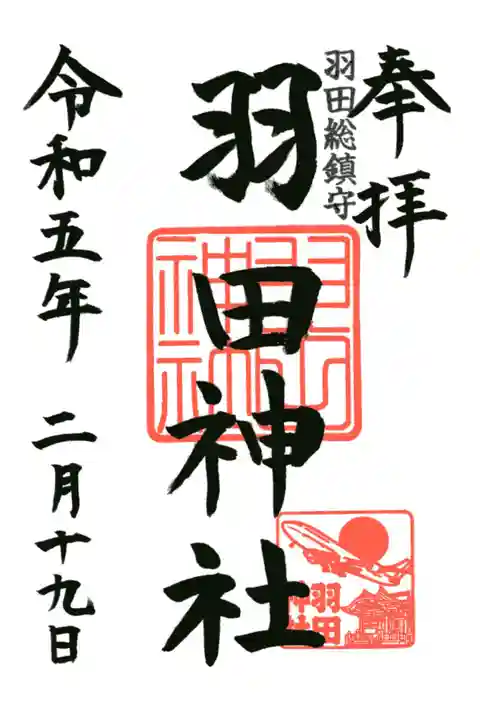 奉拝
羽田総鎮守
羽田神社
令和五年 二月十九日
羽田
神社
羽田
神社